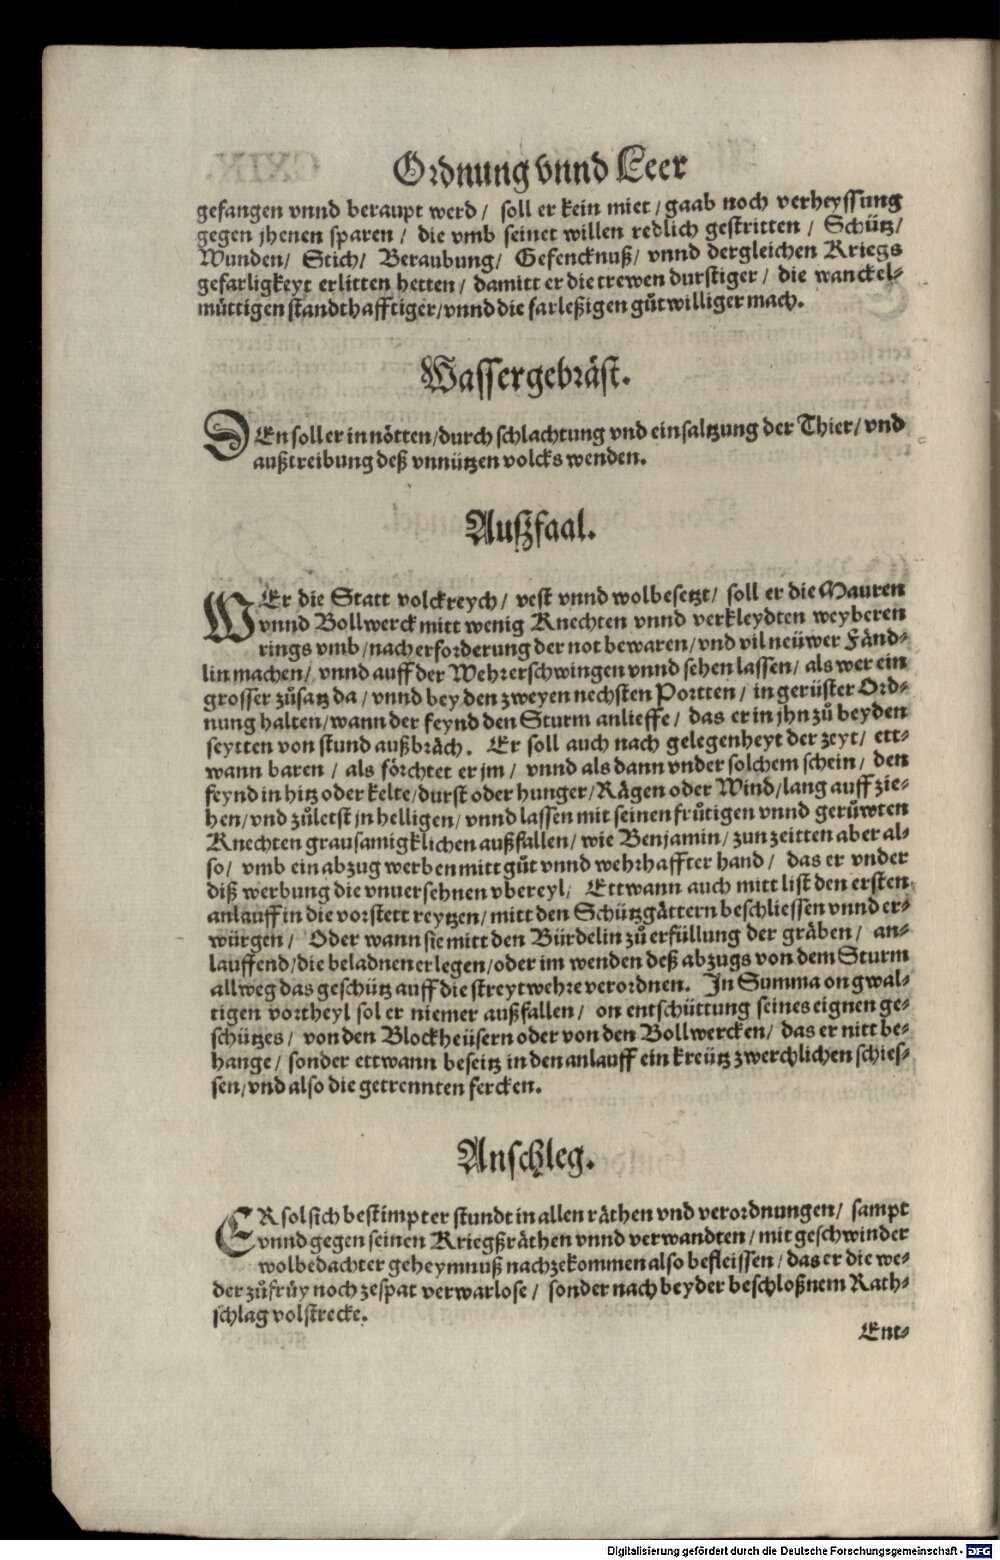 Ordnung vnnd Leer
gefangen vnnd beraupt werd / soll er kein miet / gaab noch verheyssung
gegen jhenen sparen / die vmb seinet willen redlich gestritten / Schütz/
Wunden/ Stich/ Beraubung/ Gefencknuß/ vnnd dergleichen Kriegs
gefarligkeyt erlitten hetten / damitt er die trewen durstiger / die wanckel-
müttigen standthafftiger/vnnd die farleßigen gůtwilliger mach.
Wassergebräst.
DEn soll er in nötten/durch schlachtung vnd einsaltzung der Thier/vnd
außtreibung deß vnnützen volcks wenden.
Außfaal.
WEr die Statt volckreych / vest vnnd wolbesetzt/ soll er die Mauren
vnnd Bollwerck mitt wenig Knechten vnnd verkleydten weyberen
rings vmb/nach erforderung der not bewaren/vnd vil neüwer Fänd-
lin machen/ vnnd auff der Wehr erschwingen vnnd sehen lassen/ als wer ein
grosser zůsatz da / vnnd bey den zweyen nechsten Portten / in gerüster Ord-
nung halten/wann der feynd den Sturm anlieffe / das er in jhn zů beyden
seytten von stund außbräch. Er soll auch nach gelegenheyt der zeyt/ ett-
wann baren / als förchtet er jm / vnnd als dann vnder solchem schein / den
feynd in hitz oder kelte/durst oder hunger/Rägen oder Wind/lang auff zie-
hen/vnd zůletst jn helligen/vnnd lassen mit seinen frůtigen vnnd gerůwten
Knechten grausamigklichen außfallen/ wie Benjamin/zun zeitten aber al-
so/ vmb ein abzug werben mitt gůt vnnd wehrhaffter hand / das er vnder
diß werbung die vnuersehnen vbereyl/ Ettwann auch mitt list den ersten
anlauff in die vorstett reytzen/mitt den Schützgättern beschliessen vnnd er-
würgen / Oder wann sie mitt den Bürdelin zů erfüllung der gräben / an-
lauffend/die beladnen erlegen/oder im wenden deß abzugs von dem Sturm
allweg das geschütz auff die streytwehre verordnen. In Summa on gwal-
tigen vortheyl sol er niemer außfallen / on entschüttung seines eignen ge-
schützes / von den Blockheüsern oder von den Bollwercken/ das er nitt be-
hange / sonder ettwann beseitz in den anlauff ein kreütz zwerchlichen schies-
sen/vnd also die getrennten fercken.
Anschleg.
ER sol sich bestimpter stundt in allen räthen vnd verordnungen/ sampt
vnnd gegen seinen Kriegßräthen vnnd verwandten / mit geschwinder
wolbedachter geheymnuß nachzekommen also befleissen / das er die we-
der zůfrüy noch zespat verwarlose / sonder nach beyder beschloßnem Rath-
schlag volstrecke.
Ent-
Digitalisierung gefördert durch die Deutsche Forschungsgemeinschaft - DFG